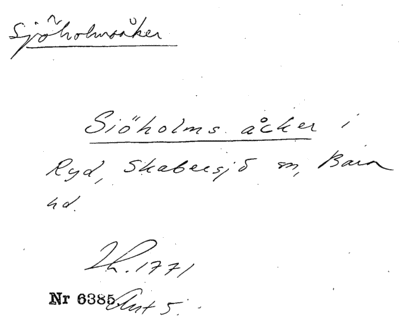 Sjöholmsåker
Sjöholms åcker i
Ryd, Skabersjö sn, Bara
hd.
Lh. 1771
Nr 6385 Akt 5.